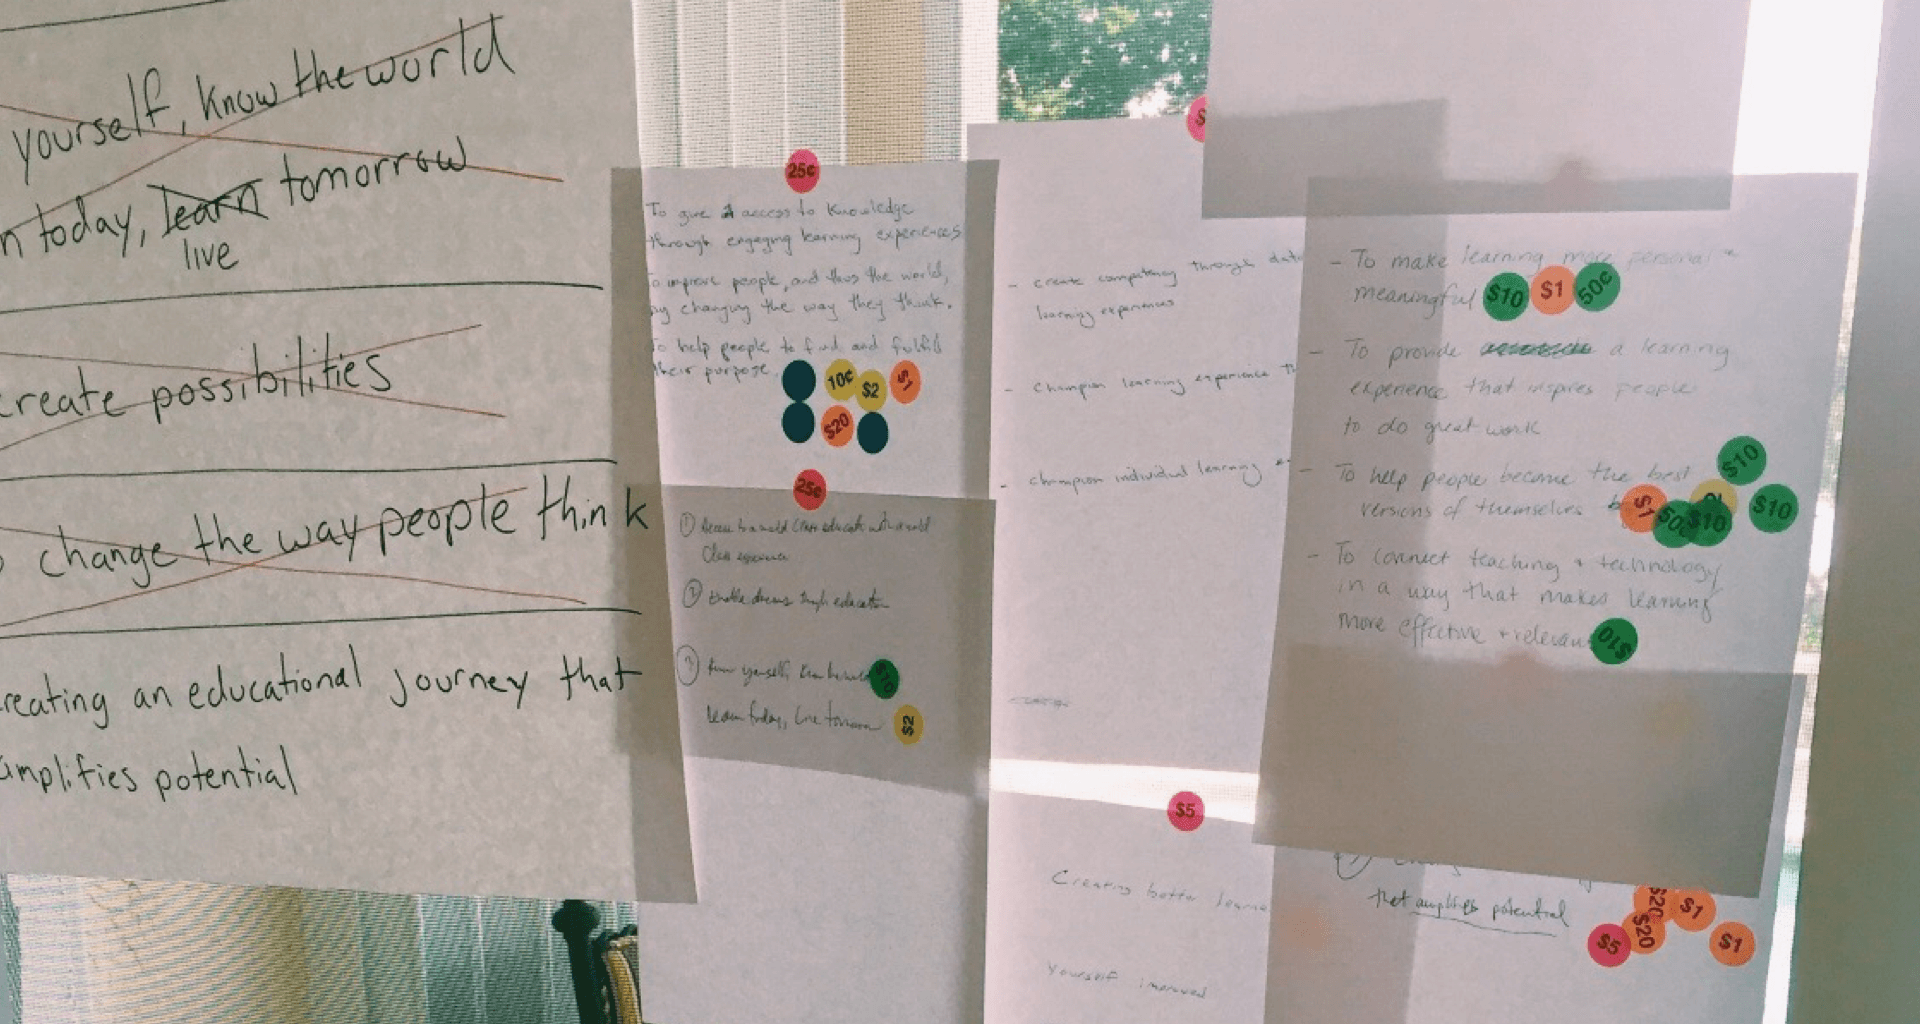 yourself, know the world
n today, learn tomorrow
live
create possibilities
change the way people think
reating an educational journey that
amplifies potential
25¢
To give access to knowledge
through engaging learning experiences
To improve people, and thus the world,
by changing the way they think.
To help people to find and fulfill
their purpose.
10¢ $2 $1
$20
25¢
① Access to a world class education with a world
Class experience
② Enable dreams through education
③ Know yourself, know the world $10
learn today, live tomorrow $2
$
- create competency through data
learning experiences
- Champion learning experience th
- Champion individual learning
$5
Creating better learne
Yourself improved
- To make learning more personal +
meaningful $10 $1 50¢
- To provide a learning
experience that inspires people
to do great work
- To help people become the best $10
versions of themselves $1 50¢ $10 $10
- To connect teaching + technology
in a way that makes learning
more effective + relevan $10
that amplifies potential
$20 $1
$5 $20 $1